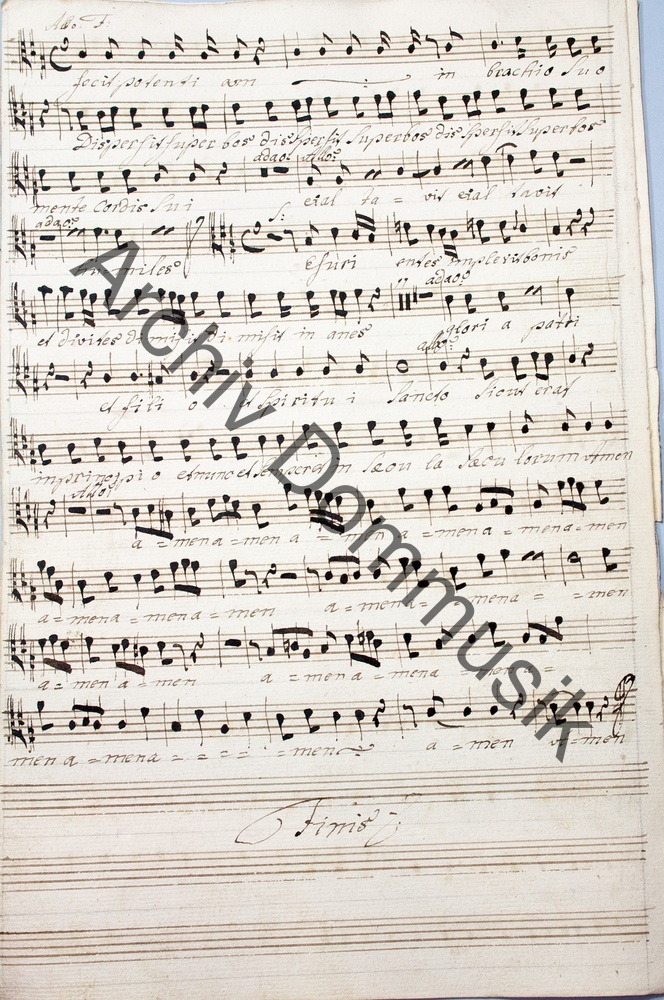 Allo. f:
fecit potenti am in brachio suo
Dispersit superbos dispersit superbos dispersit superbos
adao: allo:
mente Cordis Sui exal ta = vit exal tavit
adao: S:
humiles Esuri entes implevit bonis
adao:
et divites dimisit Dimisit in anes glori a patri
allo:
et fili o et Spiritu i Sancto Sicut erat
in principi o et nunc et semper et in Sæcu la Sæcu lorum Amen
allo:
a = men a = men a = men a = men a = men a = men
a = men a = men a = men a = men a = men = = men
a = men a = men a = men a = men a = men a =
men a = men a = = = = = men a = men A = men
Finis
Archiv Dommusik